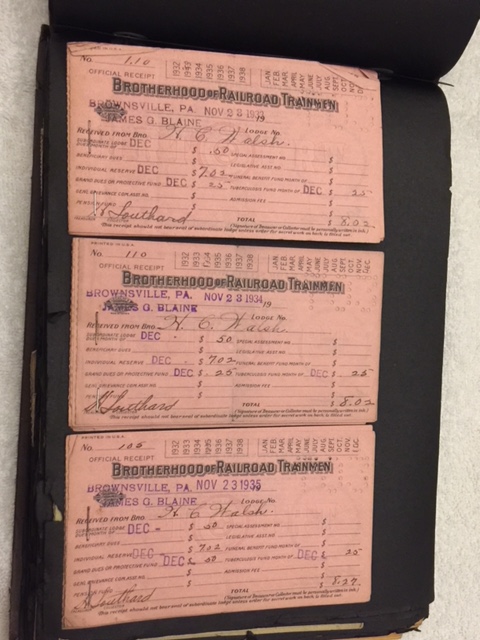 No. 110
OFFICIAL RECEIPT
1932 1933 1934 1935 1936 1937 1938
JAN. FEB. MAR. APRIL MAY JUNE JULY AUG. SEPT. OCT. NOV.
BROTHERHOOD OF RAILROAD TRAINMEN
BROWNSVILLE, PA. NOV 28 1933 19
JAMES G. BLAINE Lodge No.
RECEIVED FROM BRO. H. C. Walsh.
DEC $ .50 SPECIAL ASSESSMENT NO. $
BENEFICIARY DUES $ LEGISLATIVE ASST. NO. $
INDIVIDUAL RESERVE DEC $ 7.02 FUNERAL BENEFIT FUND MONTH OF $
GRAND DUES OR PROTECTIVE FUND DEC $ 25 TUBERCULOUS FUND MONTH OF DEC $ 25
ADMISSION FEE $
TOTAL $ 8.02
Southard (Signature of Treasurer or Collector must be personally written in ink.)
This receipt should not bear seal of subordinate lodge unless under for secret work on back is filled out.
PRINTED IN U.S.A.
No. 110
OFFICIAL RECEIPT
1932 1933 1934 1935 1936 1937 1938
JAN. FEB. MAR. APRIL MAY JUNE JULY AUG. SEPT. OCT. NOV. DEC.
BROTHERHOOD OF RAILROAD TRAINMEN
BROWNSVILLE, PA. NOV 23 1934 19
JAMES G. BLAINE Lodge No.
RECEIVED FROM BRO. H. C. Walsh.
DEC $ 50 SPECIAL ASSESSMENT NO. $
BENEFICIARY DUES $ LEGISLATIVE ASST. NO. $
INDIVIDUAL RESERVE DEC $ 7.02 FUNERAL BENEFIT FUND MONTH OF $
GRAND DUES OR PROTECTIVE FUND DEC $ 25 TUBERCULOUS FUND MONTH OF DEC $ 25
ADMISSION FEE $
TOTAL $ 8.02
Southard (Signature of Treasurer or Collector must be personally written in ink.)
This receipt should not bear seal of subordinate lodge unless under for secret work on back is filled out.
PRINTED IN U.S.A.
No. 105
OFFICIAL RECEIPT
1932 1933 1934 1935 1936 1937 1938
JAN. FEB. MAR. APRIL MAY JUNE JULY AUG. SEPT. OCT. NOV. DEC.
BROTHERHOOD OF RAILROAD TRAINMEN
BROWNSVILLE, PA. NOV 23 1935
JAMES G. BLAINE Lodge No.
RECEIVED FROM BRO. H. C. Walsh.
DEC $ 50 SPECIAL ASSESSMENT NO. $
BENEFICIARY DUES $ LEGISLATIVE ASST. NO. $
INDIVIDUAL RESERVE DEC $ 7.02 FUNERAL BENEFIT FUND MONTH OF $
GRAND DUES OR PROTECTIVE FUND DEC $ 50 TUBERCULOUS FUND MONTH OF DEC $ 25
ADMISSION FEE $
TOTAL $ 8.27
Southard (Signature of Treasurer or Collector must be personally written in ink.)
This receipt should not bear seal of subordinate lodge unless under for secret work on back is filled out.